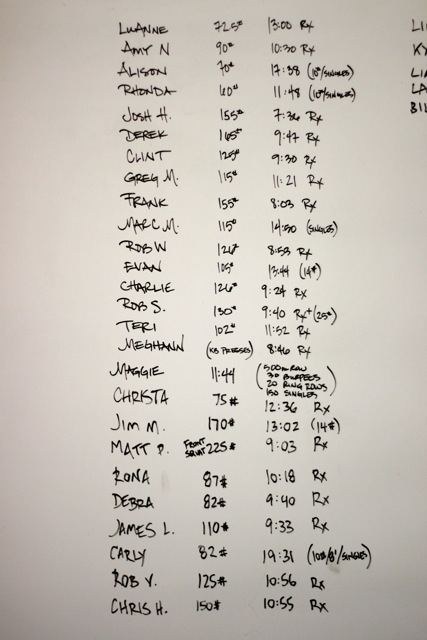 LUANNE 72.5# 13:00 Rx
AMY N 90# 10:30 Rx
ALISON 70# 17:38 (10#/SINGLES)
RHONDA 60# 11:48 (10#/SINGLES)
JOSH H. 155# 7:36 Rx
DEREK 165# 9:47 Rx
CLINT 125# 9:30 Rx
GREG M. 115# 11:21 Rx
FRANK 155# 8:03 Rx
MARC M. 115# 14:50 (SINGLES)
ROB W 126# 8:53 Rx
EVAN 105# 13:44 (14#)
CHARLIE 126# 9:24 Rx
ROB S. 130# 9:40 Rx+ (25#)
TERI 102# 11:52 Rx
MEGHANN (KB PRESSES) 8:46 Rx
MAGGIE 11:44 (500m ROW
30 BURPEES
20 RING ROWS
150 SINGLES)
CHRISTA 75# 12:36 Rx
JIM M. 170# 13:02 (14#)
MATT P. FRONT SQUAT 225# 9:03 Rx
RONA 87# 10:18 Rx
DEBRA 82# 9:40 Rx
JAMES L. 110# 9:33 Rx
CARLY 82# 19:31 (10#/8'/SINGLES)
ROB V. 125# 10:56 Rx
CHRIS H. 150# 10:55 Rx